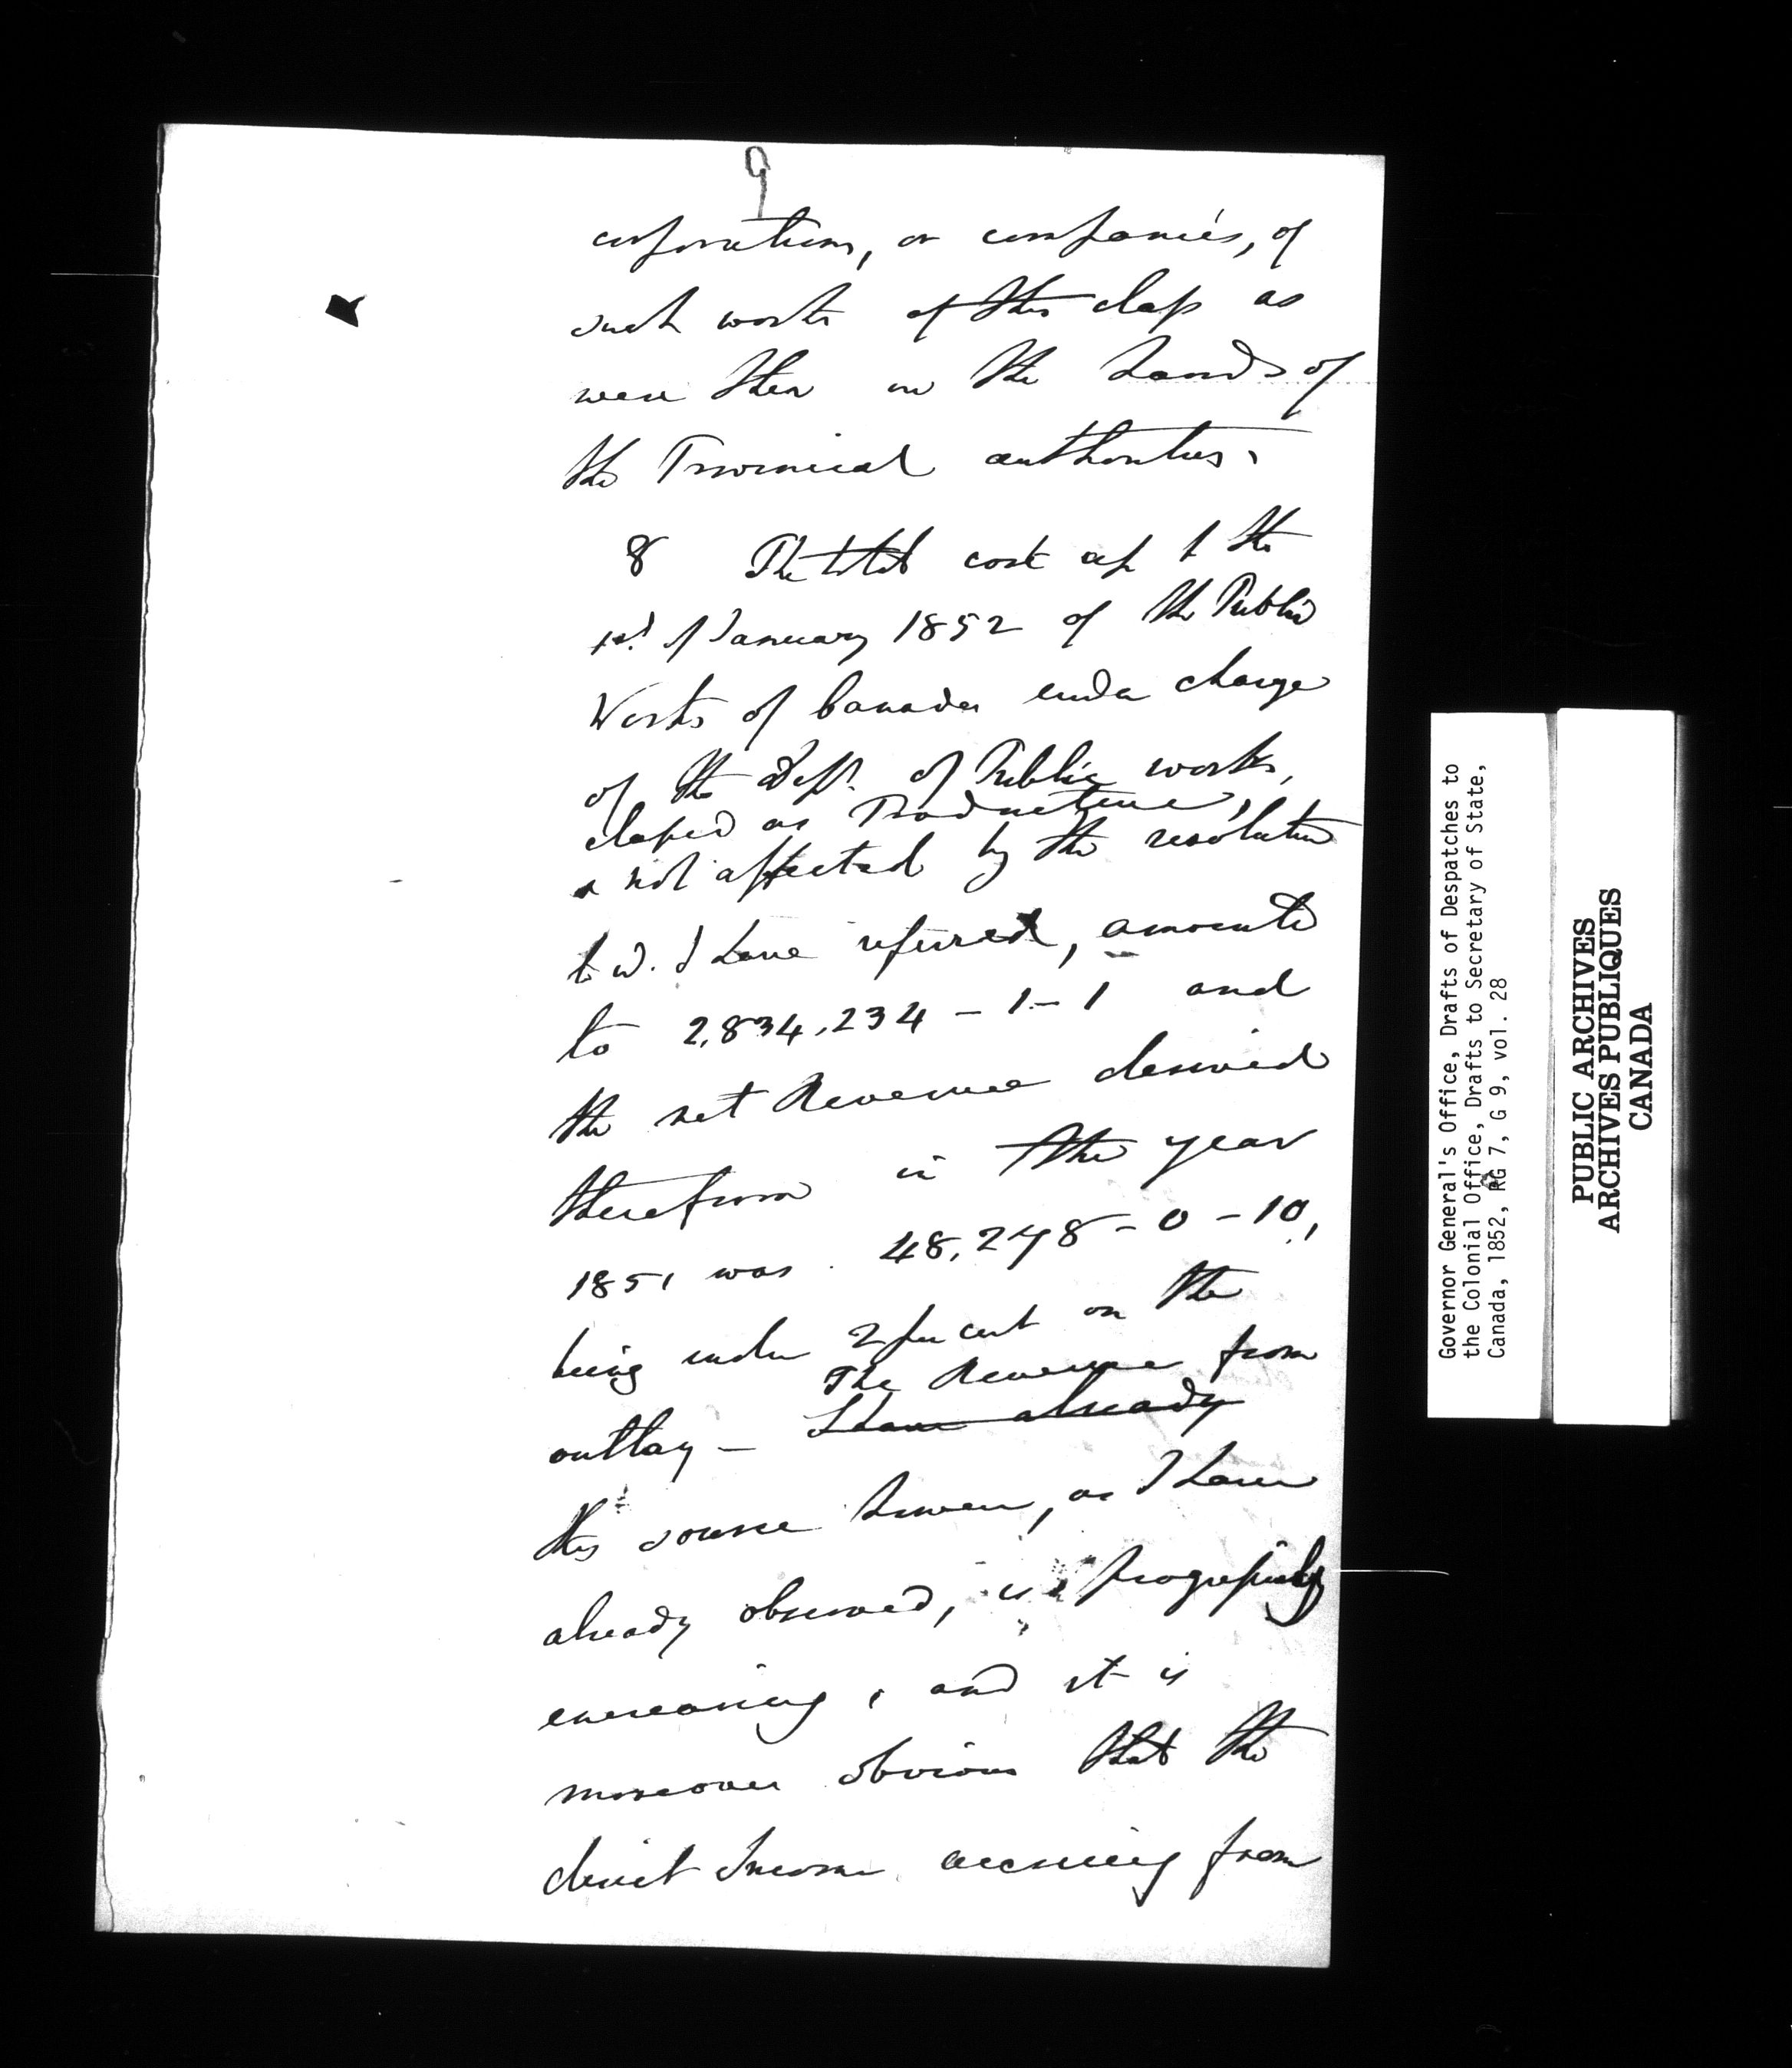 9
corporations, or companies, of
such works of this class as
were then in the hands of
the Provincial authorities.
8 The total cost up to the
1st of January 1852 of the Public
Works of Canada under charge
of the Dept. of Public works,
classed as Productive,
& not affected by the resolution
to w. I have referred, amounts
to 2,834,234 - 1 - 1 and
the net Revenue derived
therefrom in the year
1851 was 48,278 - 0 - 10,
being under 2 per cent on the
outlay - I have already
The Revenue from
this source however, as I have
already observed, is progressively
encreasing, and it is
moreover obvious that the
direct Income accruing from
Governor General's Office, Drafts of Despatches to
the Colonial Office, Drafts to Secretary of State,
Canada, 1852, RG 7, G 9, vol. 28
PUBLIC ARCHIVES
ARCHIVES PUBLIQUES
CANADA